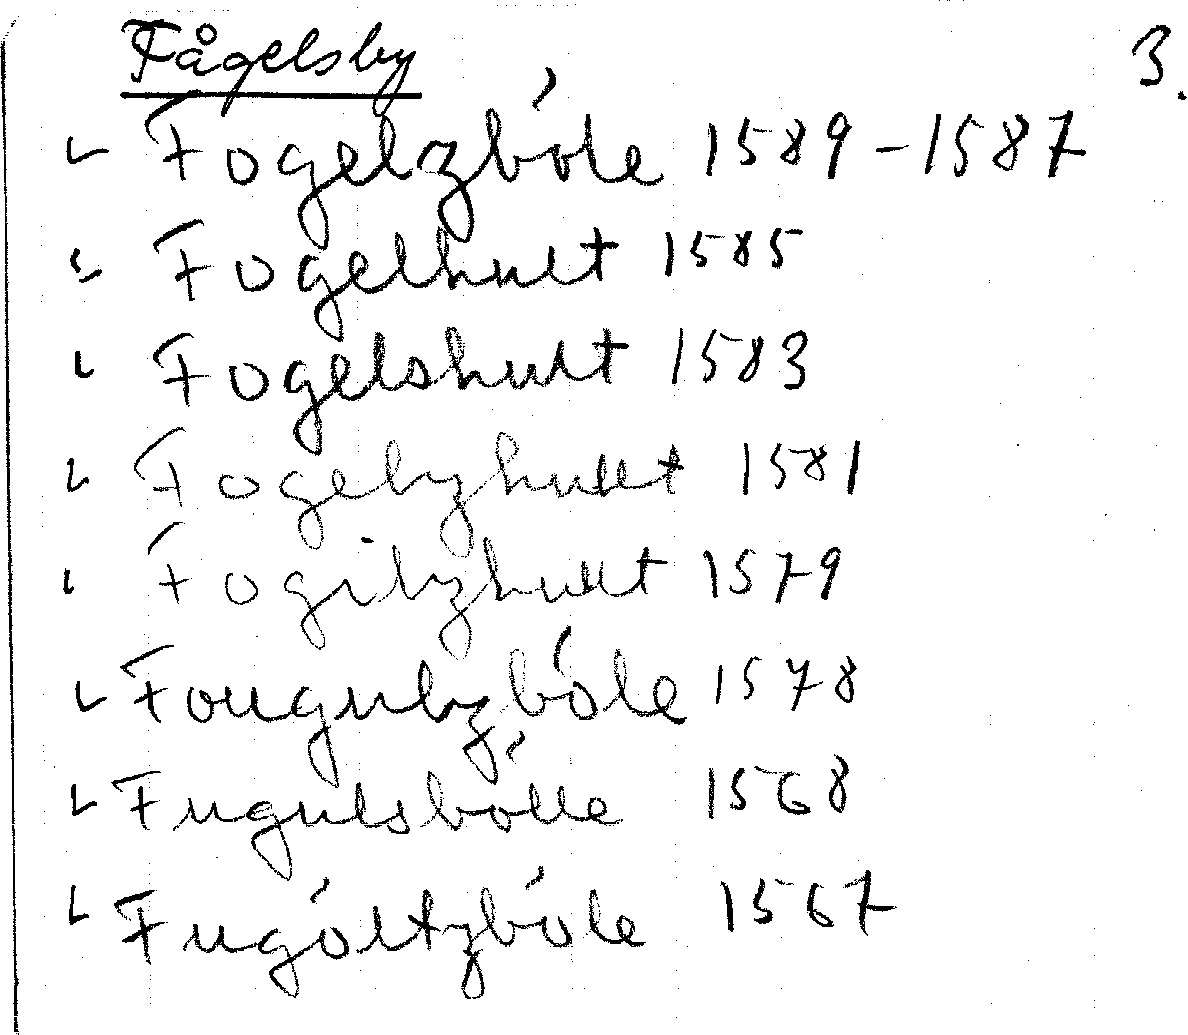 Fågelsby 3.
Fogelzbóle 1589-1587
Fogelhult 1585
Fogelshult 1583
Fogelzhult 1581
Fogilzhult 1579
Fougulzbóle 1578
Fugulsbólle 1568
Fugóltzbóle 1567